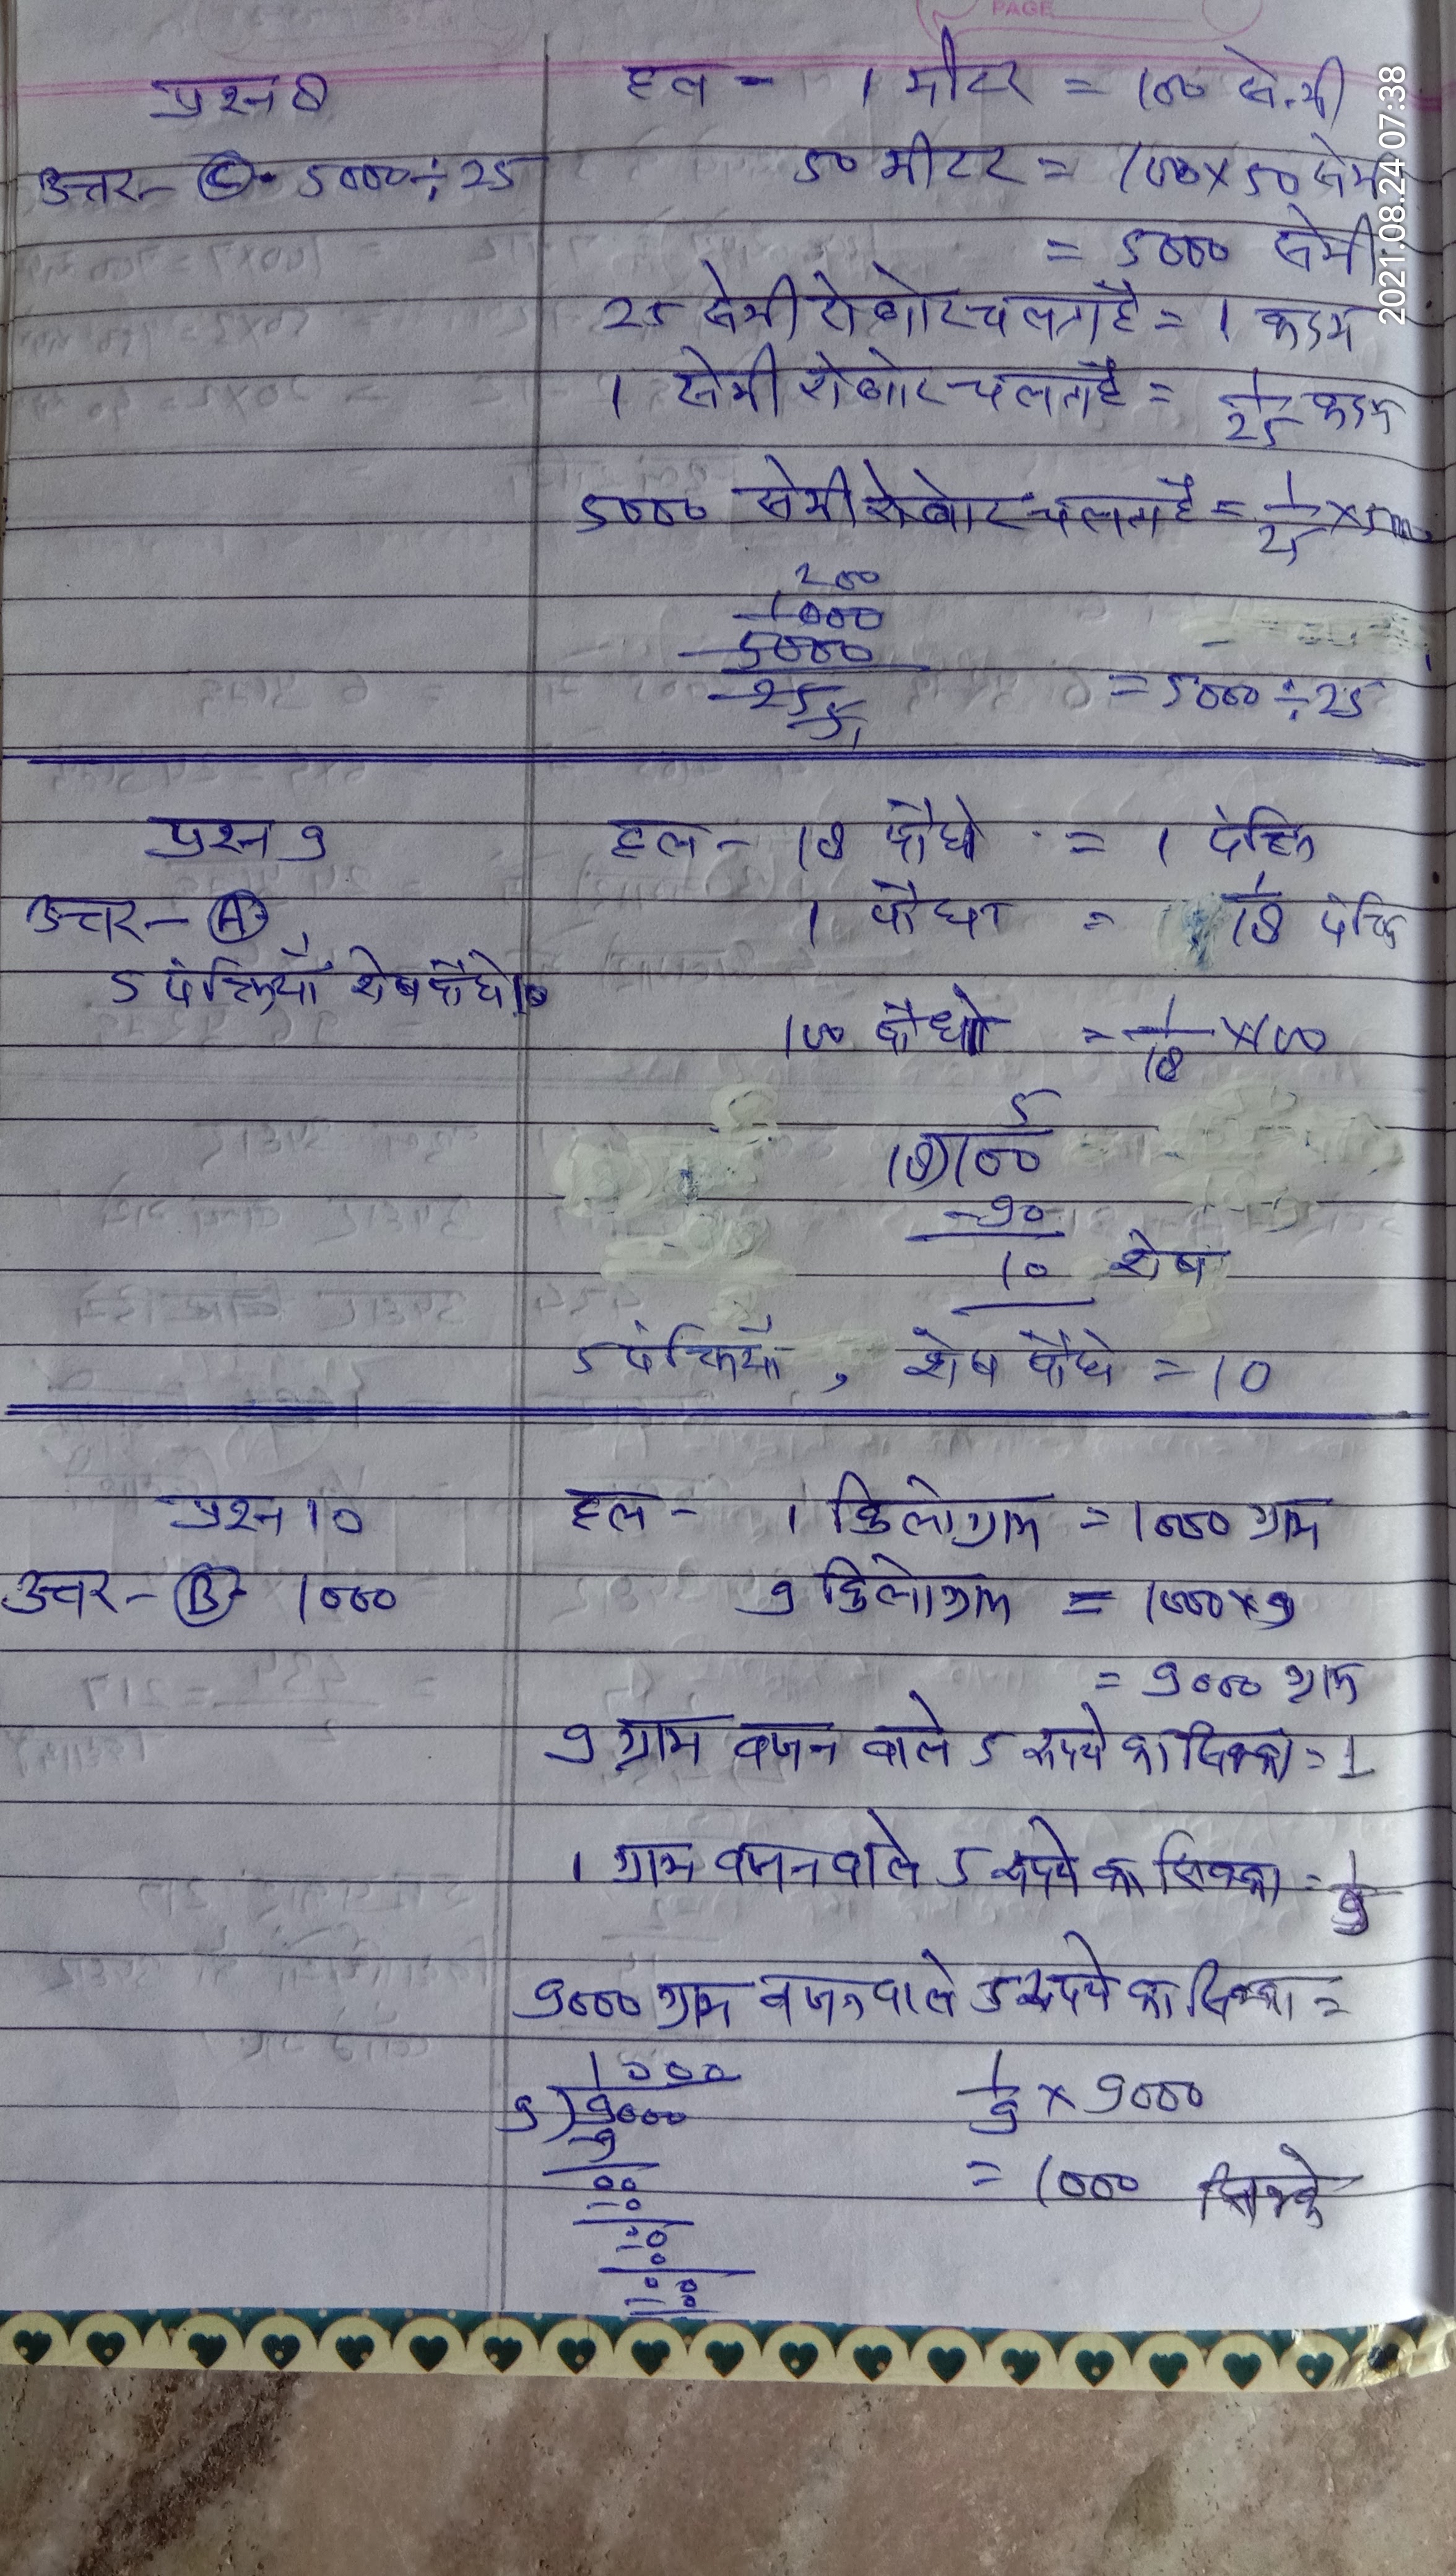 PAGE
2021.08.24 07:38
प्रश्न 8
उत्तर- (C). 5000÷25
हल - 1 मीटर = 100 से.मी
50 मीटर = 100×50 सेमी
= 5000 सेमी
25 सेमी रोबोट चलता है = 1 कदम
1 सेमी रोबोट चलता है = 1/25 कदम
5000 सेमी रोबोट चलता है = 1/25 × 5000
200
1000
5000
25
5
1
= 5000÷25
प्रश्न 9
उत्तर- (A)
5 पंक्तियाँ शेष पौधे 10
हल - 18 पौधे = 1 पंक्ति
1 पौधा = 1/18 पंक्ति
100 पौधों = 1/18 ×100
5
18)100
-90
10 शेष
5 पंक्तियाँ, शेष पौधे = 10
प्रश्न 10
उत्तर- (B) 1000
हल - 1 किलोग्राम = 1000 ग्राम
9 किलोग्राम = 1000×9
= 9000 ग्राम
9 ग्राम वजन वाले 5 रूपये का सिक्का = 1
1 ग्राम वजन वाले 5 रूपये का सिक्का = 1/9
9000 ग्राम वजन वाले 5 रूपये का सिक्का =
1/9 × 9000
= 1000 सिक्के
1000
9)9000
-9
00
-0
00
-0
00
-0